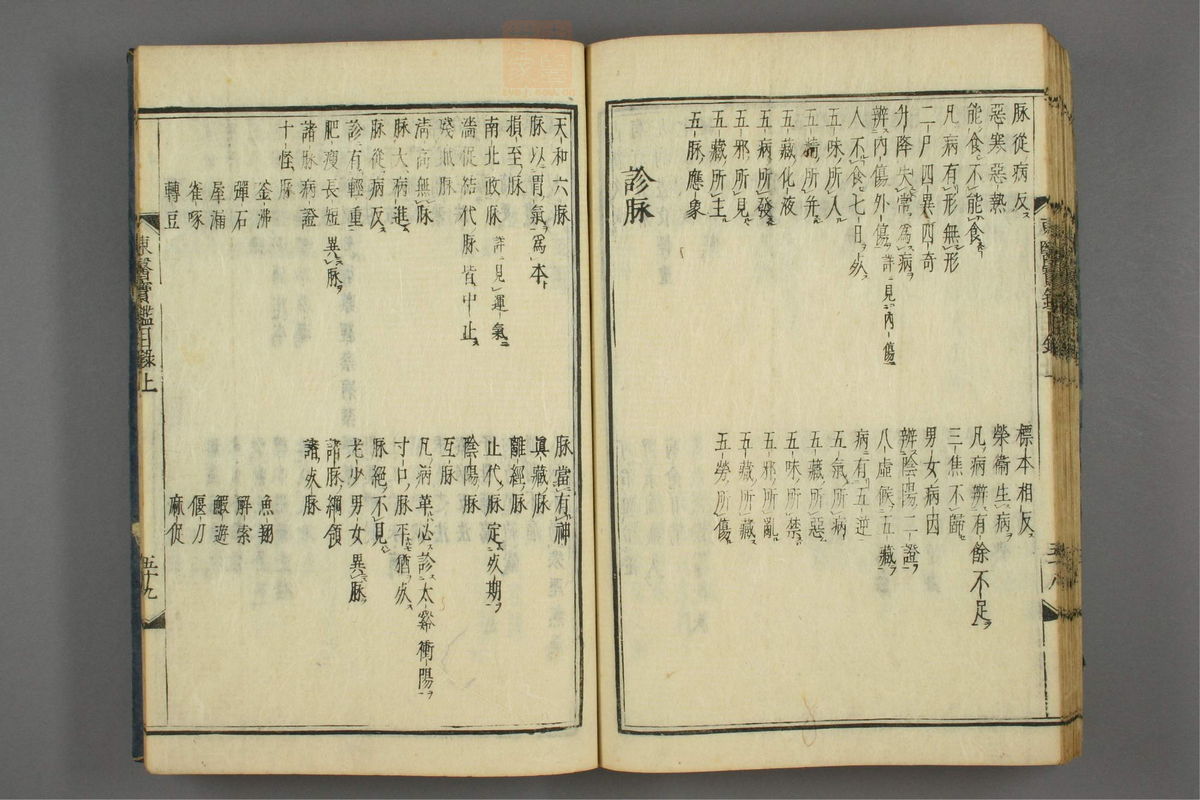 脉從病反
惡寒惡熱
能食不能食
凡病有形無形
二尸四異四奇
升降失常爲病
辨內傷外傷 詳見內傷
人不食七日死
五味所入
五精所并
五藏化液
五病所發
五邪所見
五藏所主
五脉應象
標本相反
榮衛生病
凡病辨有餘不足
三焦不歸
男女病因
辨陰陽二證
八虛候五藏
病有五逆
五氣所病
五藏所惡
五味所禁
五邪所亂
五藏所藏
五勞所傷
診脉
天和六脉
脉以胃氣爲本
損至脉
南北政脉 詳見運氣
濇促結代脉皆中止
殘賊脉
淸高無脉
脉大病進
脉從病反
診有輕重
肥瘦長短異脉
諸脉病證
十怪脉
釜沸
彈石
屋漏
雀啄
轉豆
脉當有神
眞藏脉
離經脉
止代脉定死期
陰陽脉
互脉
凡病革必診太谿衝陽
寸口脉平猶死
脉絕不見
老少男女異脉
諸脉綱領
諸死脉
魚翔
解索
鰕遊
偃刀
麻促
東醫寶鑑目錄上
五十九